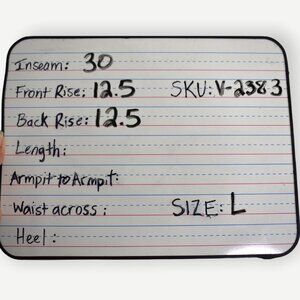 Inseam: 30
Front Rise: 12.5 SKU: V-2383
Back Rise: 12.5
Length:
Armpit to Armpit:
Waist across: SIZE: L
Heel: